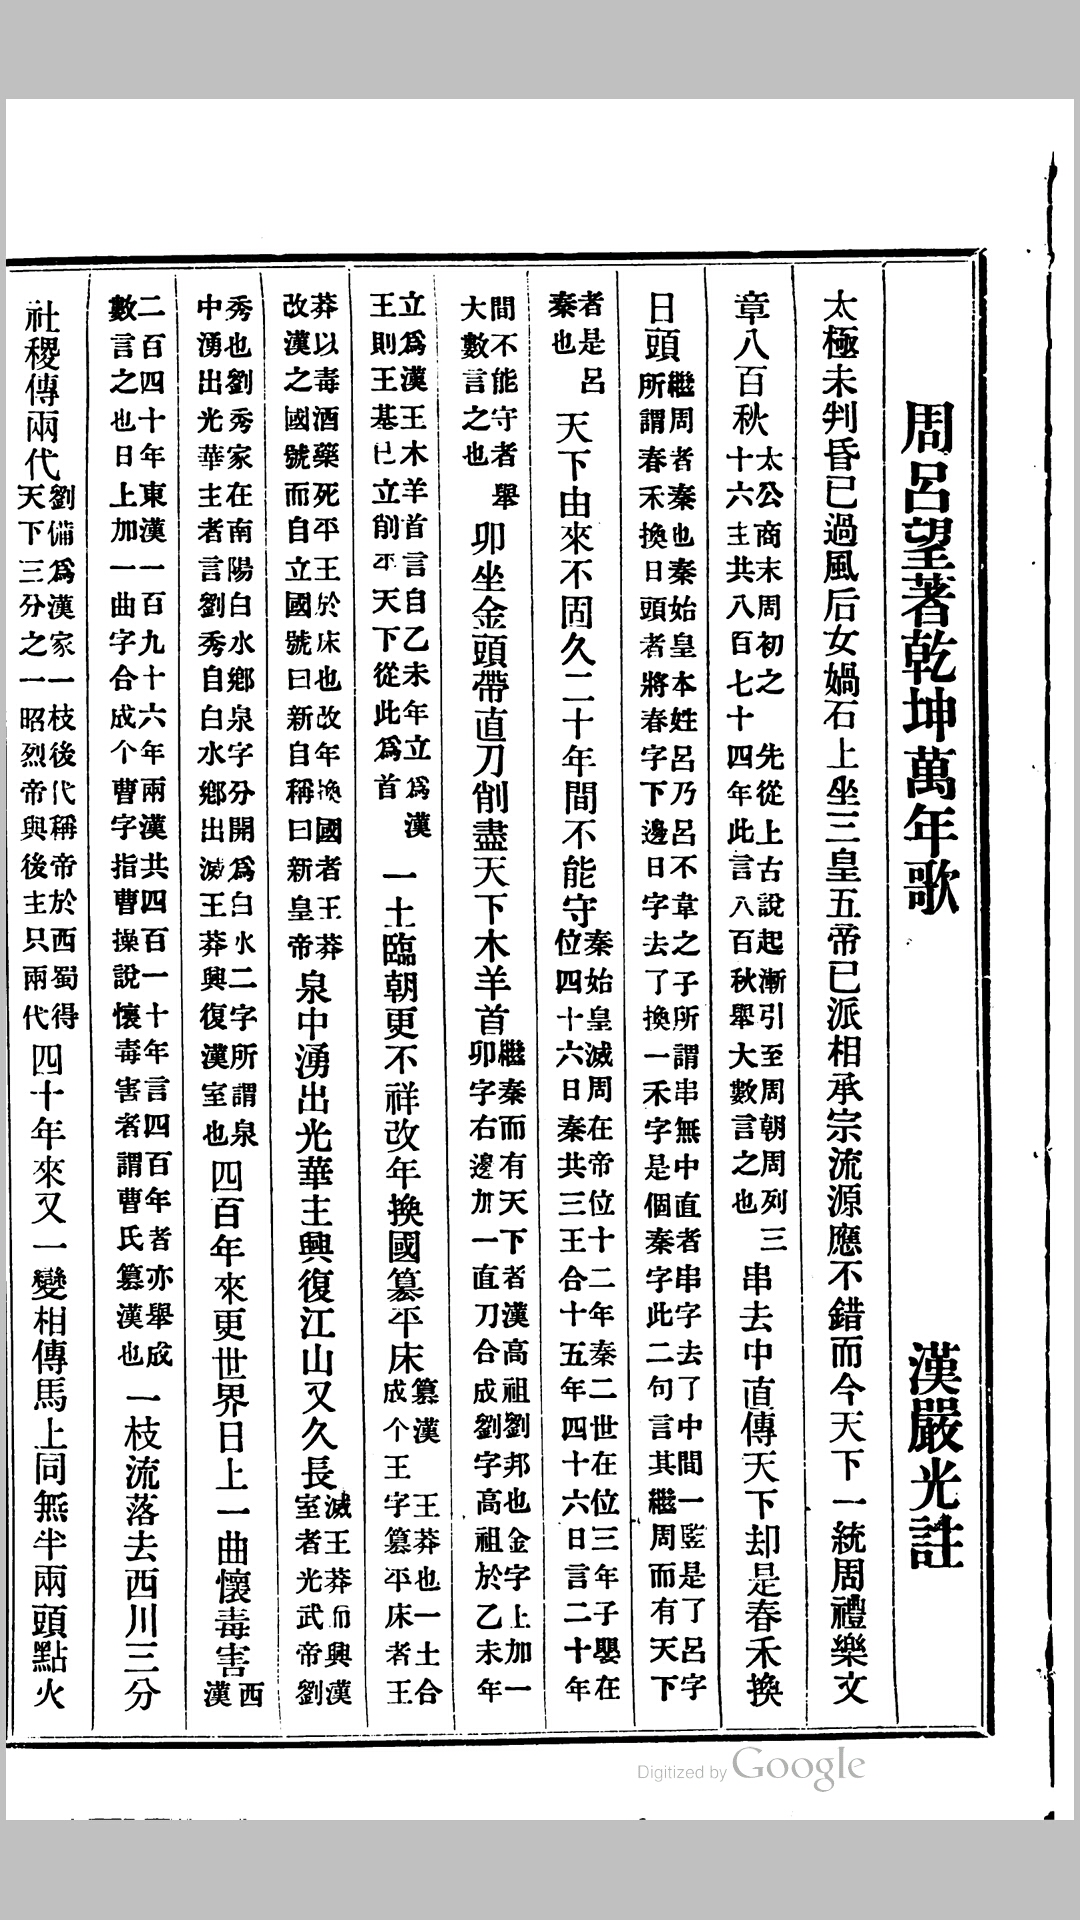 周呂望著乾坤萬年歌 漢嚴光註
太極未判昏已過風后女媧石上坐三皇五帝已派相承宗流源應不錯而今天下一統周禮樂文
章八百秋太公商末周初之先從上古說起漸引至周朝周列三十六主共八百七十四年此言八百秋舉大數言之也串去中直傳天下却是春禾換
日頭繼周者秦也秦始皇本姓呂乃呂不韋之子所謂串無中直者串字去了中間一豎是了呂字所謂春禾換日頭者將春字下邊日字去了換一禾字是個秦字此二句言其繼周而有天下
者是呂秦也天下由來不固久二十年間不能守秦始皇滅周在帝位十二年秦二世在位三年子嬰在位四十六日秦共三王合十五年四十六日言二十年
間不能守者舉大數言之也卯坐金頭帶直刀削盡天下木羊首繼秦而有天下者漢高祖劉邦也金字上加一卯字右邊加一直刀合成劉字高祖於乙未年
立爲漢王木羊首言自乙未年立爲漢王則王基已立削平天下從此爲首一土臨朝更不祥改年換國篡平床篡漢王莽也一土合成个王字篡平床者王
莽以毒酒藥死平王於床也改年換國者王莽改漢之國號而自立國號曰新自稱曰新皇帝泉中湧出光華主興復江山又久長滅王莽而興漢室者光武帝劉
秀也劉秀家在南陽白水鄉泉字分開爲白水二字所謂泉中湧出光華主者言劉秀自白水鄉出滅王莽興復漢室也四百年來更世界日上一曲懷毒害西漢
二百四十年東漢一百九十六年兩漢共四百一十年言四百年者亦舉成數言之也日上加一曲字合成个曹字指曹操說懷毒害者謂曹氏篡漢也一枝流落去西川三分
社稷傳兩代劉備爲漢家一枝後代稱帝於西蜀得天下三分之一昭烈帝與後主只兩代四十年來又一變相傳馬上同無半兩頭點火
Digitized by Google